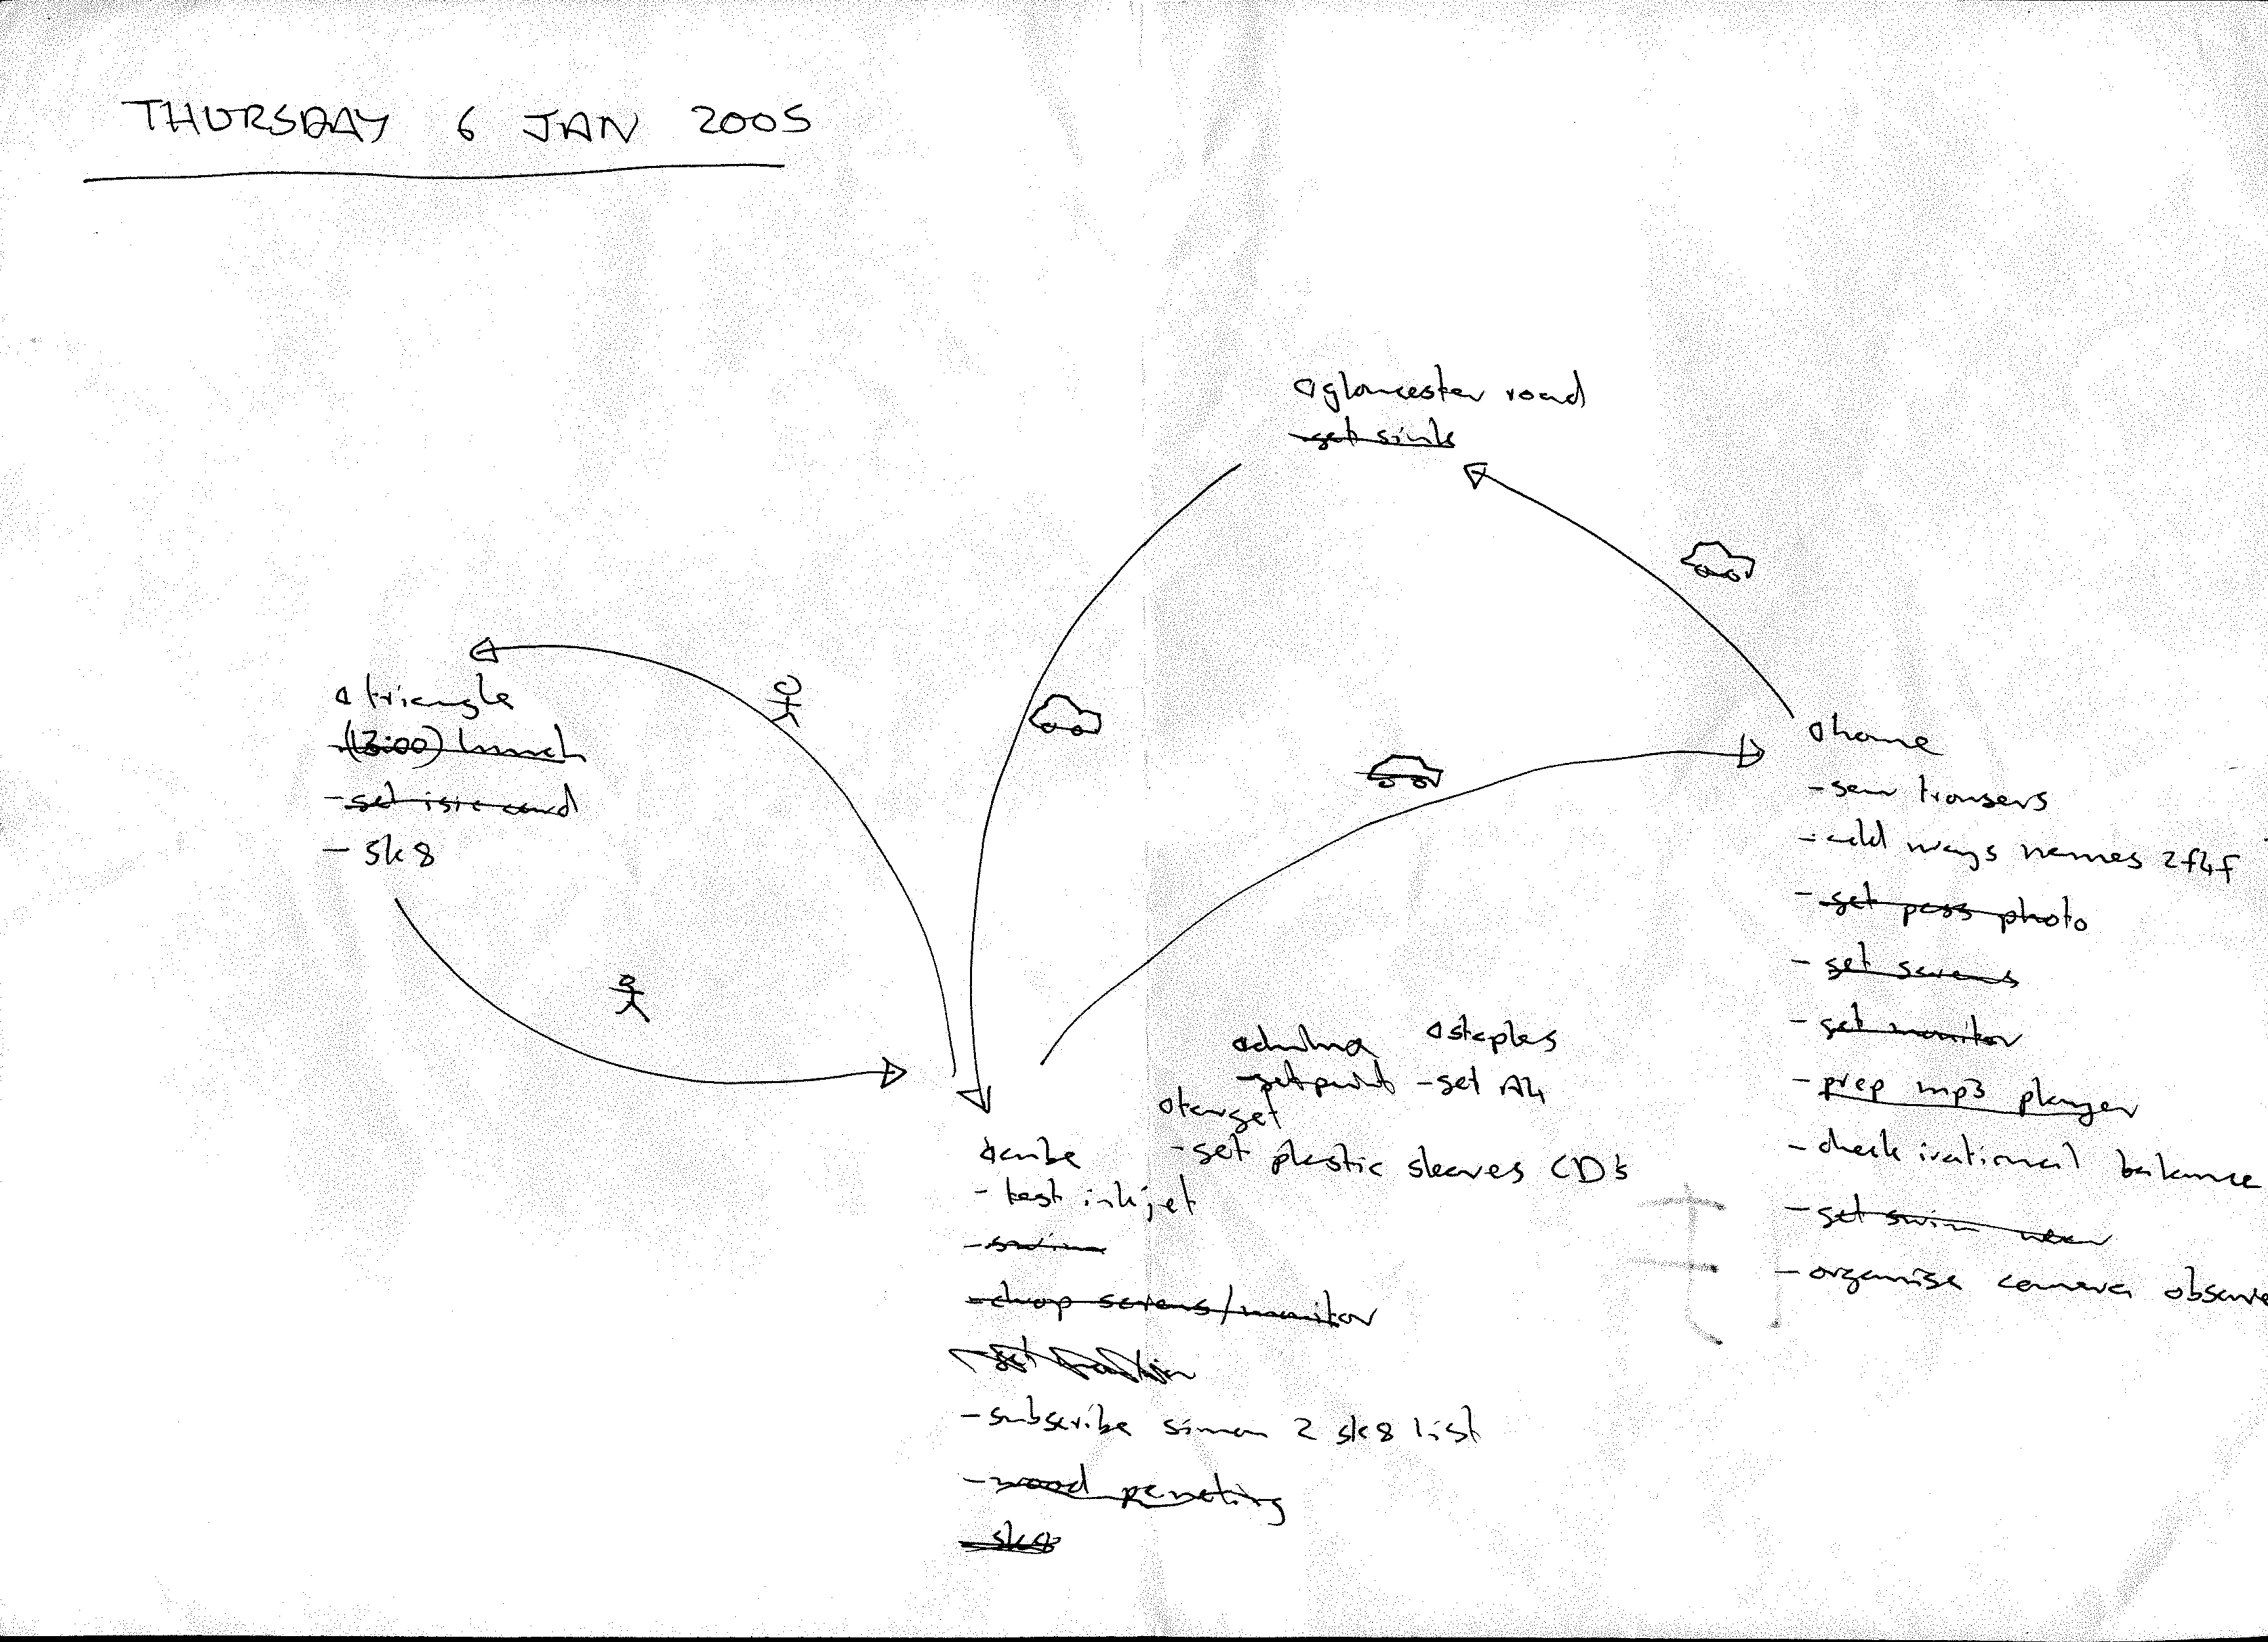 THURSDAY 6 JAN 2005
gloucester road
-get sink
triangle
-(13:00) lunch
-get isic card
- sk8
home
- sew trousers
- add names 2f4f
- get pass photo
- get screens
- get monitor
- prep mp3 player
- check irational balance
- get swim wear
- organise camera
staples
-get paint
- get A4
target
- get plastic sleeves CD's
cube
- test inkjet
- swim
- drop screens/monitor
- subscribe simon 2 sk8 list
- wood
- sk8